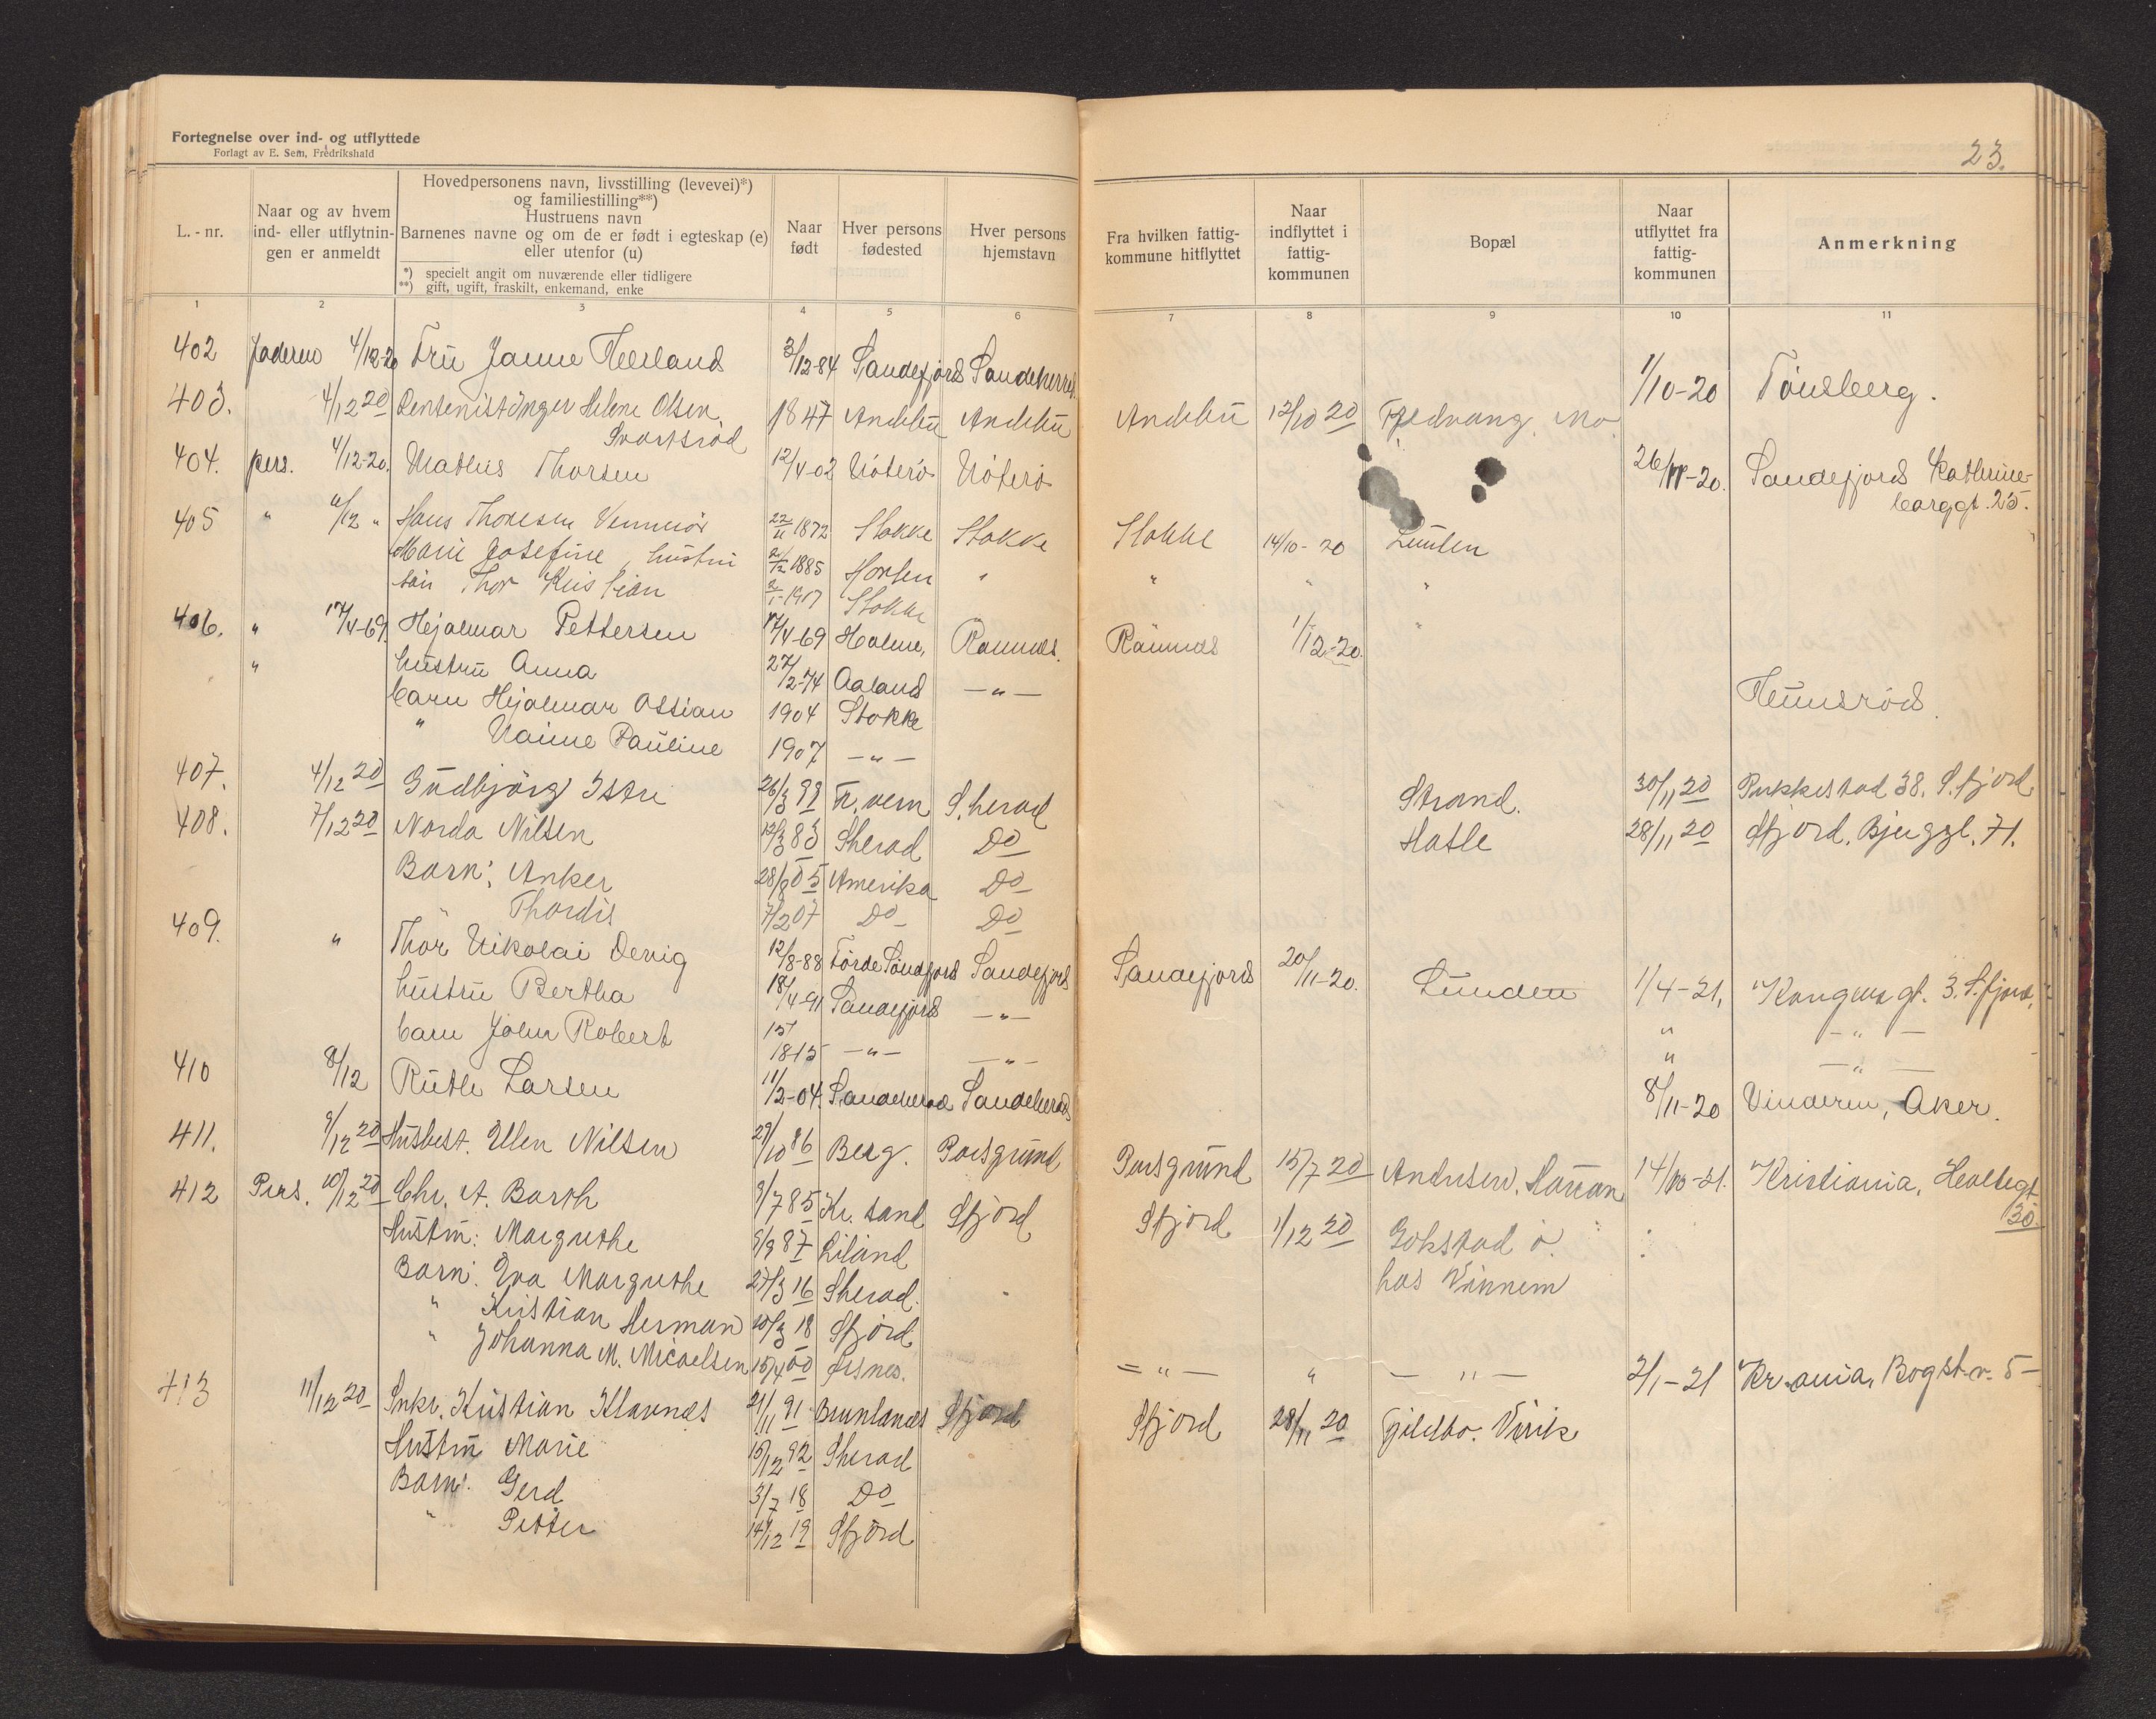 Fortegnelse over ind- og utflyttede
Forlagt av E. Sem, Fredrikshald
23.
L. - nr.
Naar og av hvem ind- eller utflytnin- gen er anmeldt
Hovedpersonens navn, livsstilling (levevei)*)
og familiestilling**)
Hustruens navn
Barnenes navne og om de er født i egteskap (e)
eller utenfor (u)
*) specielt angit om nuværende eller tidligere
**) gift, ugift, fraskilt, enkemand, enke
Naar født
Hver persons fødested
Hver persons hjemstavn
Fra hvilken fattig- kommune hitflyttet
Naar indflyttet i fattig- kommunen
Bopæl
Naar utflyttet fra fattig- kommunen
Anmerkning
1 2 3 4 5 6 7 8 9 10 11
402 faderen 4/12-20 Fru Janne 3/12-84 Sandefjord Sandeherred 1/10-20 Tönsberg.
403. 4/12 20 Inger Helene Olsen 1847 Andebu Andebu Andebu 12/10 20 Mo
Svartsröd
404. pers. 4/12-20. Mathis Thorsen 12/4-02 Nöterö Nöterö 26/11-20. Sandefjord Kathrine-
borggt. 25.
405 " 4/12 " Hans Thoresen 22/11 1872 Stokke Stokke Stokke 14/10-20 Lunden
Marie Josefine, hustru 2/12 1885 Horten " " " "
sön Thor Kristian 2/1-1917 Stokke "
406. " 17/4-69. Hjalmar Pettersen 17/4-69 Holme, Ramnes. Ramnes 1/12-20.
" hustru Anna 27/2-74 Aaland —"—
barn Hjalmar Ossian 1904 Stokke
" Nanne Pauline 1907 —"—
407. 4/12 20 Gudbjörg Istre 26/3 99 Fr.vern S.herad Strand. 30/11 20 Pukkestad 38. S.fjord
408. 7/12 20 Norda Nilsen 12/3 83 Sherad Do Hasle 28/11 20 Sfjord. Bjerggt. 71.
Barn: Anker 28/8 05 Amerika Do
" Thordis 7/2 07 Do Do
409. " Thor Nikolai Devig 12/8-88 Förde Söndfjord Sandefjord Sandefjord 20/11-20. Lunden 1/4-21, Kongens gt. 3. S.fjord,
hustru Bertha 18/4-91 Sandefjord —"— " —"—
barn John Robert 15/18-15 —"— —"— " —"—
410 8/12 Ruth Larsen 11/2-04. Sandeherad Sandeherad 8/11-20 Vinderen, Aker.
411. 9/12 20 Husbest. Ellen Nilsen 29/10 86 Berg. Porsgrund Porsgrund 15/7 20 Andersen. 14/10-21. Kristiania, Holtegt.
30.
412 Pers. 10/12 20 Chr. A. Barth 9/7 85 Kr. sand Sfjord Sfjord 1/12 20 Gokstad ö.
Hustru: Margrethe 9/9 87 hos Vinnem
Barn: Eva Margrethe 27/3 16 Sherad.
" Kristian Herman 10/3 18 Sfjord.
" Johanna M. Micaelsen 15/4 00 Øsnes. —"— " —"— 2/1-21 Kr.ania, Bogst.v. 5-
413 11/12 20 Snkr. Kristian Klavnæs 21/11 91 Brunlanes Sfjord Sfjord 28/11 20 Gjildbo. Virik
Hustru Marie 15/12 92 Sherad
Barn: Gerd 3/7 18 Do
" Petter 14/12 19 Sfjord